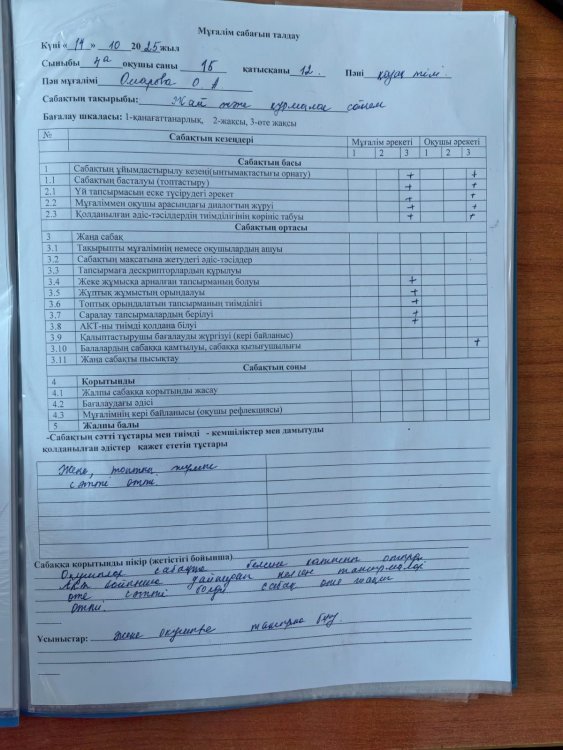 Мұғалім сабағын талдау
Күні « 14 » 10 2025 жыл
Сыныбы 7а оқушы саны 15 қатысқаны 12. Пәні қазақ тілі.
Пән мұғалімі Омарова О. А
Сабақтың тақырыбы: Жай және құрмалас сөйлем
Бағалау шкаласы: 1-қанағаттанарлық, 2-жақсы, 3-өте жақсы
№ Сабақтың кезеңдері Мұғалім әрекеті Оқушы әрекеті
1 2 3 1 2 3
Сабақтың басы
1 Сабақтың ұйымдастырылу кезеңі(ынтымақтастығы орнату) + +
1.1 Сабақтың басталуы (топтастыру) + +
2.1 Үй тапсырмасын еске түсірудегі әрекет + +
2.2 Мұғаліммен оқушы арасындағы диалогтың жүруі + +
2.3 Қолданылған әдіс-тәсілдердің тиімділігінің көрініс табуы + +
Сабақтың ортасы
3 Жаңа сабақ
3.1 Тақырыпты мұғалімнің немесе оқушылардың ашуы
3.2 Сабақтың мақсатына жетудегі әдіс-тәсілдер
3.3 Тапсырмаға дескрипторлардың құрылуы
3.4 Жеке жұмысқа арналған тапсырманың болуы +
3.5 Жұптық жұмыстың орындалуы +
3.6 Топтық орындалатын тапсырманың тиімділігі +
3.7 Саралау тапсырмалардың берілуі +
3.8 АКТ-ны тиімді қолдана білуі +
3.9 Қалыптастырушы бағалауды жүргізуі (кері байланыс)
3.10 Балалардың сабаққа қамтылуы, сабаққа қызығушылығы +
3.11 Жаңа сабақты пысықтау
Сабақтың соңы
4 Қорытынды
4.1 Жалпы сабаққа қорытынды жасау
4.2 Бағалаудағы әдісі
4.3 Мұғалімнің кері байланысы (оқушы рефлекциясы)
5 Жалпы балы
-Сабақтың сәтті тұстары мен тиімді - кемшіліктер мен дамытуды
қолданылған әдістер қажет ететін тұстары
Жеке, топтық жұмыс
сәтті өтті.
Сабаққа қорытынды пікір (жетістігі бойынша)
Оқушылар сабаққа белсене қатысып отырды
АКТ бойынша дайындап келген тапсырмалар
өте сәтті болды. сабақ өте жақсы
өтті.
Ұсыныстар: Жеке оқушыға тапсырма беру.